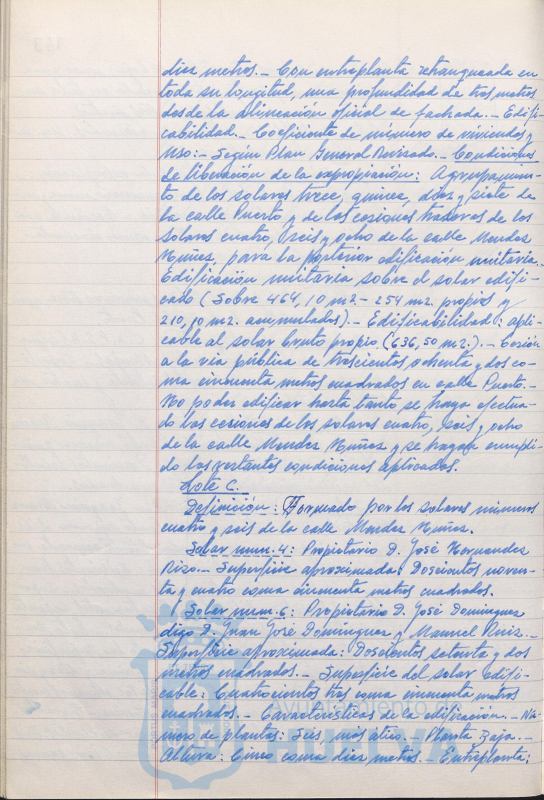 diez metros.- Con entreplanta retranqueada en
toda su longitud, una profundidad de tres metros
desde la alineación oficial de fachada.- Edifi-
cabilidad.- Coeficiente de número de viviendas y
uso:- Según Plan General Revisado.- Condiciones
de liberación de la expropiación: Agrupamien-
to de los solares trece, quince, diez y siete de
la calle Puerto y de las cesiones traseras de los
solares cuatro, seis y ocho de la calle Mendez
Núñez, para la posterior edificación unitaria.-
Edificación unitaria sobre el solar edifi-
cado (Sobre 464,10 m2 - 254 m2. propios y
210,10 m2. acumulados).- Edificabilidad: apli-
cable al solar bruto propio (636,50 m2.).- Cesión
a la vía pública de trescientos ochenta y dos co-
ma cincuenta metros cuadrados en calle Puerto.-
No poder edificar hasta tanto se haya efectua-
do las cesiones de los solares cuatro, seis y ocho
de la calle Mendez Núñez y se hayan cumpli-
do los restantes condiciones aplicados.
Lote C.
Definición: Formado por los solares números
cuatro y seis de la calle Mendez Núñez.
Solar num. 4: Propietario D. José Hernandez
Rizo.- Superficie aproximada: Doscientos noven-
ta y cuatro coma cincuenta metros cuadrados.
Solar num. 6: Propietario D. José Dominguez
digo D. Juan José Dominguez y Manuel Ruiz.-
Superficie aproximada: Doscientos setenta y dos
metros cuadrados.- Superficie del solar edifi-
cable: Cuatrocientos tres coma cincuenta metros
cuadrados.- Características de la edificación.- Nú-
mero de plantas: Seis, más ático.- Planta Baja.-
Altura: Cinco coma diez metros.- Entreplanta:
Ayuntamiento de
HUELVA